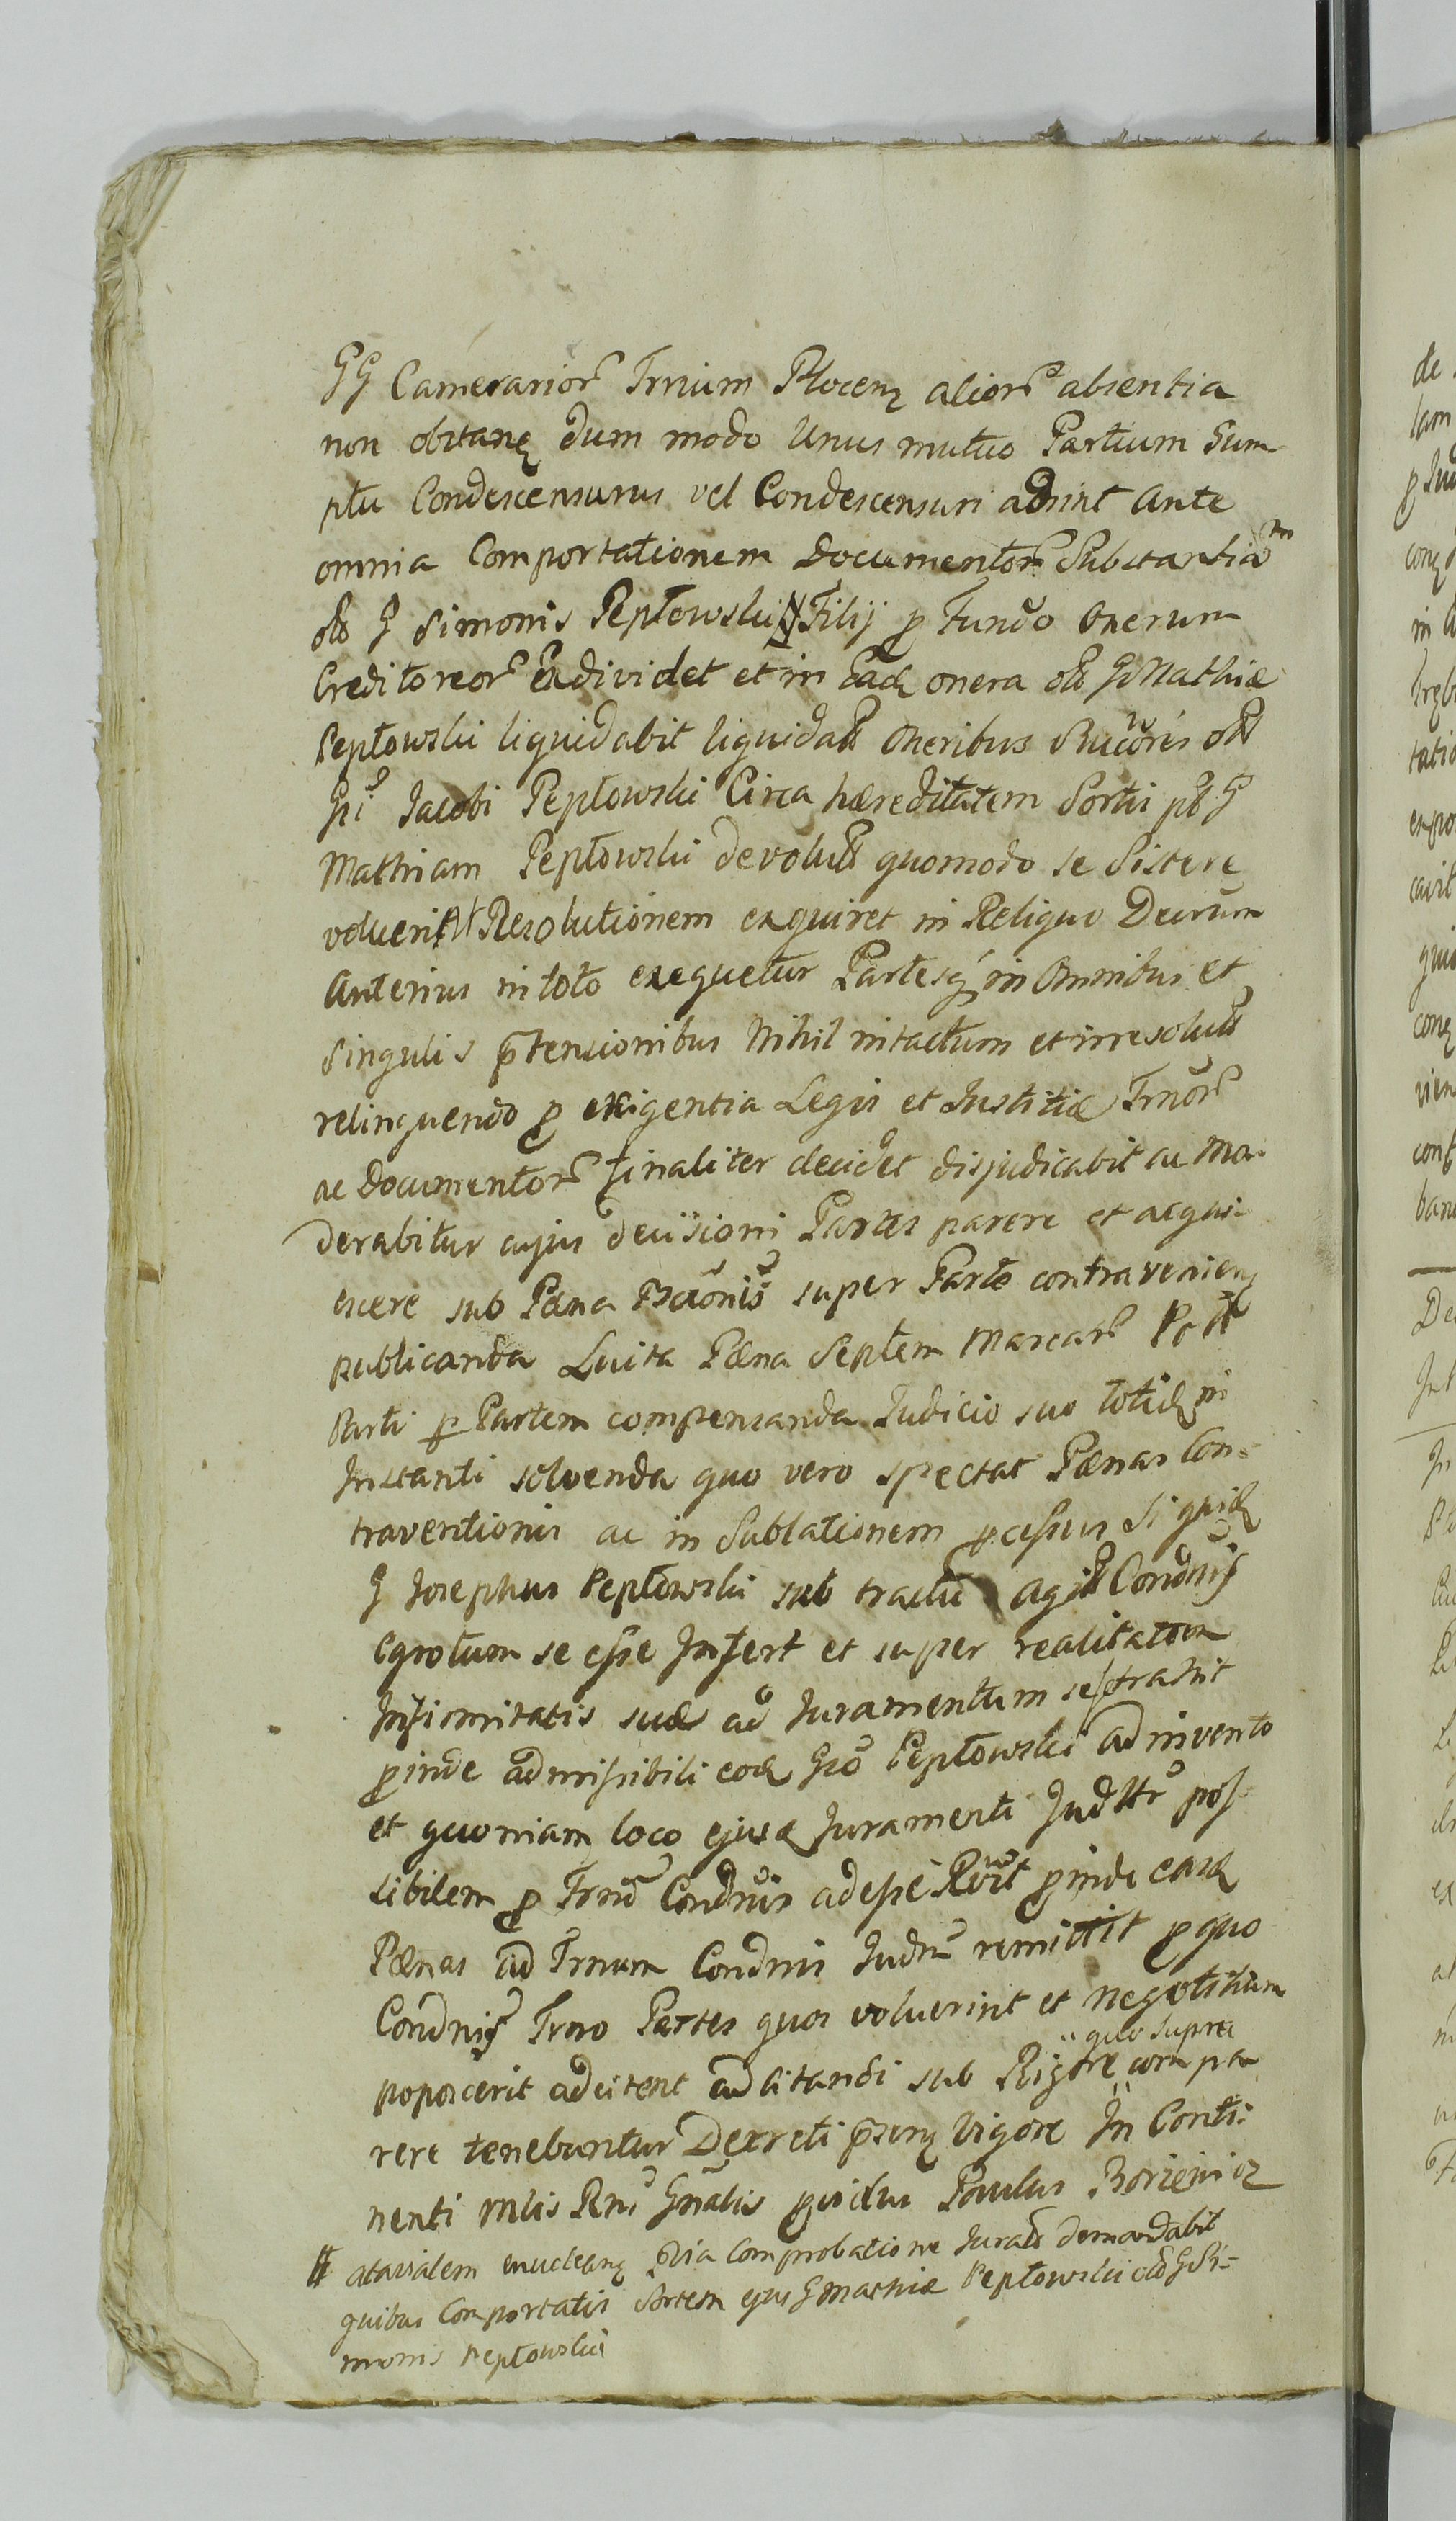 GG Camerarior Trrium Plocen alior absentia
non obstane dum modo Unus mutuo Partium Sum-
ptu Condescensurus vel Condescensuri adsint Ante
omnia Comportationem Documentor Substantia
olb G Simonis Peptowski Filij p Fundo Onerum
Creditoreor Exdividet et in Eadq onera olb G Mathiæ
Peptowski liquidabit liquidatt Oneribus olb
Gsi Jacobi Peptowski Circa hæreditatem Sortis pb G
Mathiam Peptowski devolutt quomodo se Sistere
voluerit Resolutionem exquiret in Reliquo Decrum
Anterius in toto exequetur Partesq in Omnibus et
Singulis ptensionibus Nihil intactum et irresolutt
relinquendo p exigentia Legis et Justitiæ Trnor
ac Documentor finaliter decidet disjudicabit ac Mo-
derabitur cujus decisioni Partes parere et acqui-
escere sub Pæna Baonis super Parte contravenien
publicanda Luita Pæna Septem Marcar P
Parti p Partem compensanda Judicio suo totidq in
Instanti solvenda quo vero spectat Pænas Con=
traventionis ac in Sublationem pcessus Siquidq
G Josephus Peptowski sub tractu agitt Condnis
Egrotum se esse Infert et super realitatem
Infirmitatis suæ ad Juramentum se trahit
pinde admissibili eodq Gso Peptowski adinvento
et quoniam loco ejusdq Juramenti Judttr pos-
sibilem p Trnu Condnis adesse pinde easdq
Pænas ad Trnum Condnis Judm remittit p quo
Condnis Trno Partes quos voluerint et Negotitium
poposcerit adcitent adcitandi sub Rigore compa-
" quo supra
rere tenebuntur Decreti psen Vigore In Conti-
nenti Mlis Rni Gnalis pvidus Paulus Borzeniez
# atavialem enuclean Via Comprobatione Juratt demandabit
quibus Comportatis Sortem ejus G Mathiæ Peptowski olb G Si=
monis Peptowski